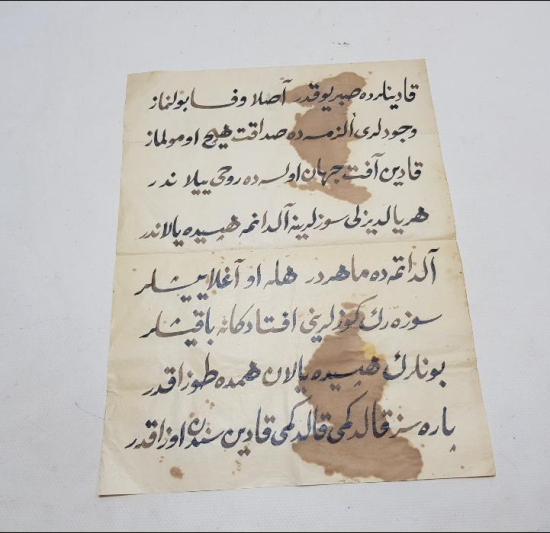 قادینلرده صبر یوقدر آصلا وفا بولنماز
وجودلری الزمه ده صداقت هیچ اومولماز
قادین آفت جهان اولسه ده روحی ییلاندر
هر یالدیزلی سوزلرینه آلدانمه هپسیده یالاندر
آلداتمه ده ماهردر هله او آغلاییشلر
سوزه رك كوزلرینی افتادكانه باقیشلر
بونلرك هپسیده یالان همده طوزاقدر
پاره سز قالدكمی قالدكمی قادین سندن اوزاقدر